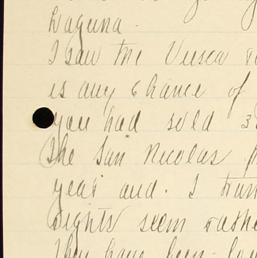 Laguna.
I saw the
is any chance of
you had sold 3
The San Nicolas
year and. I
Rights seem rathe
They have been